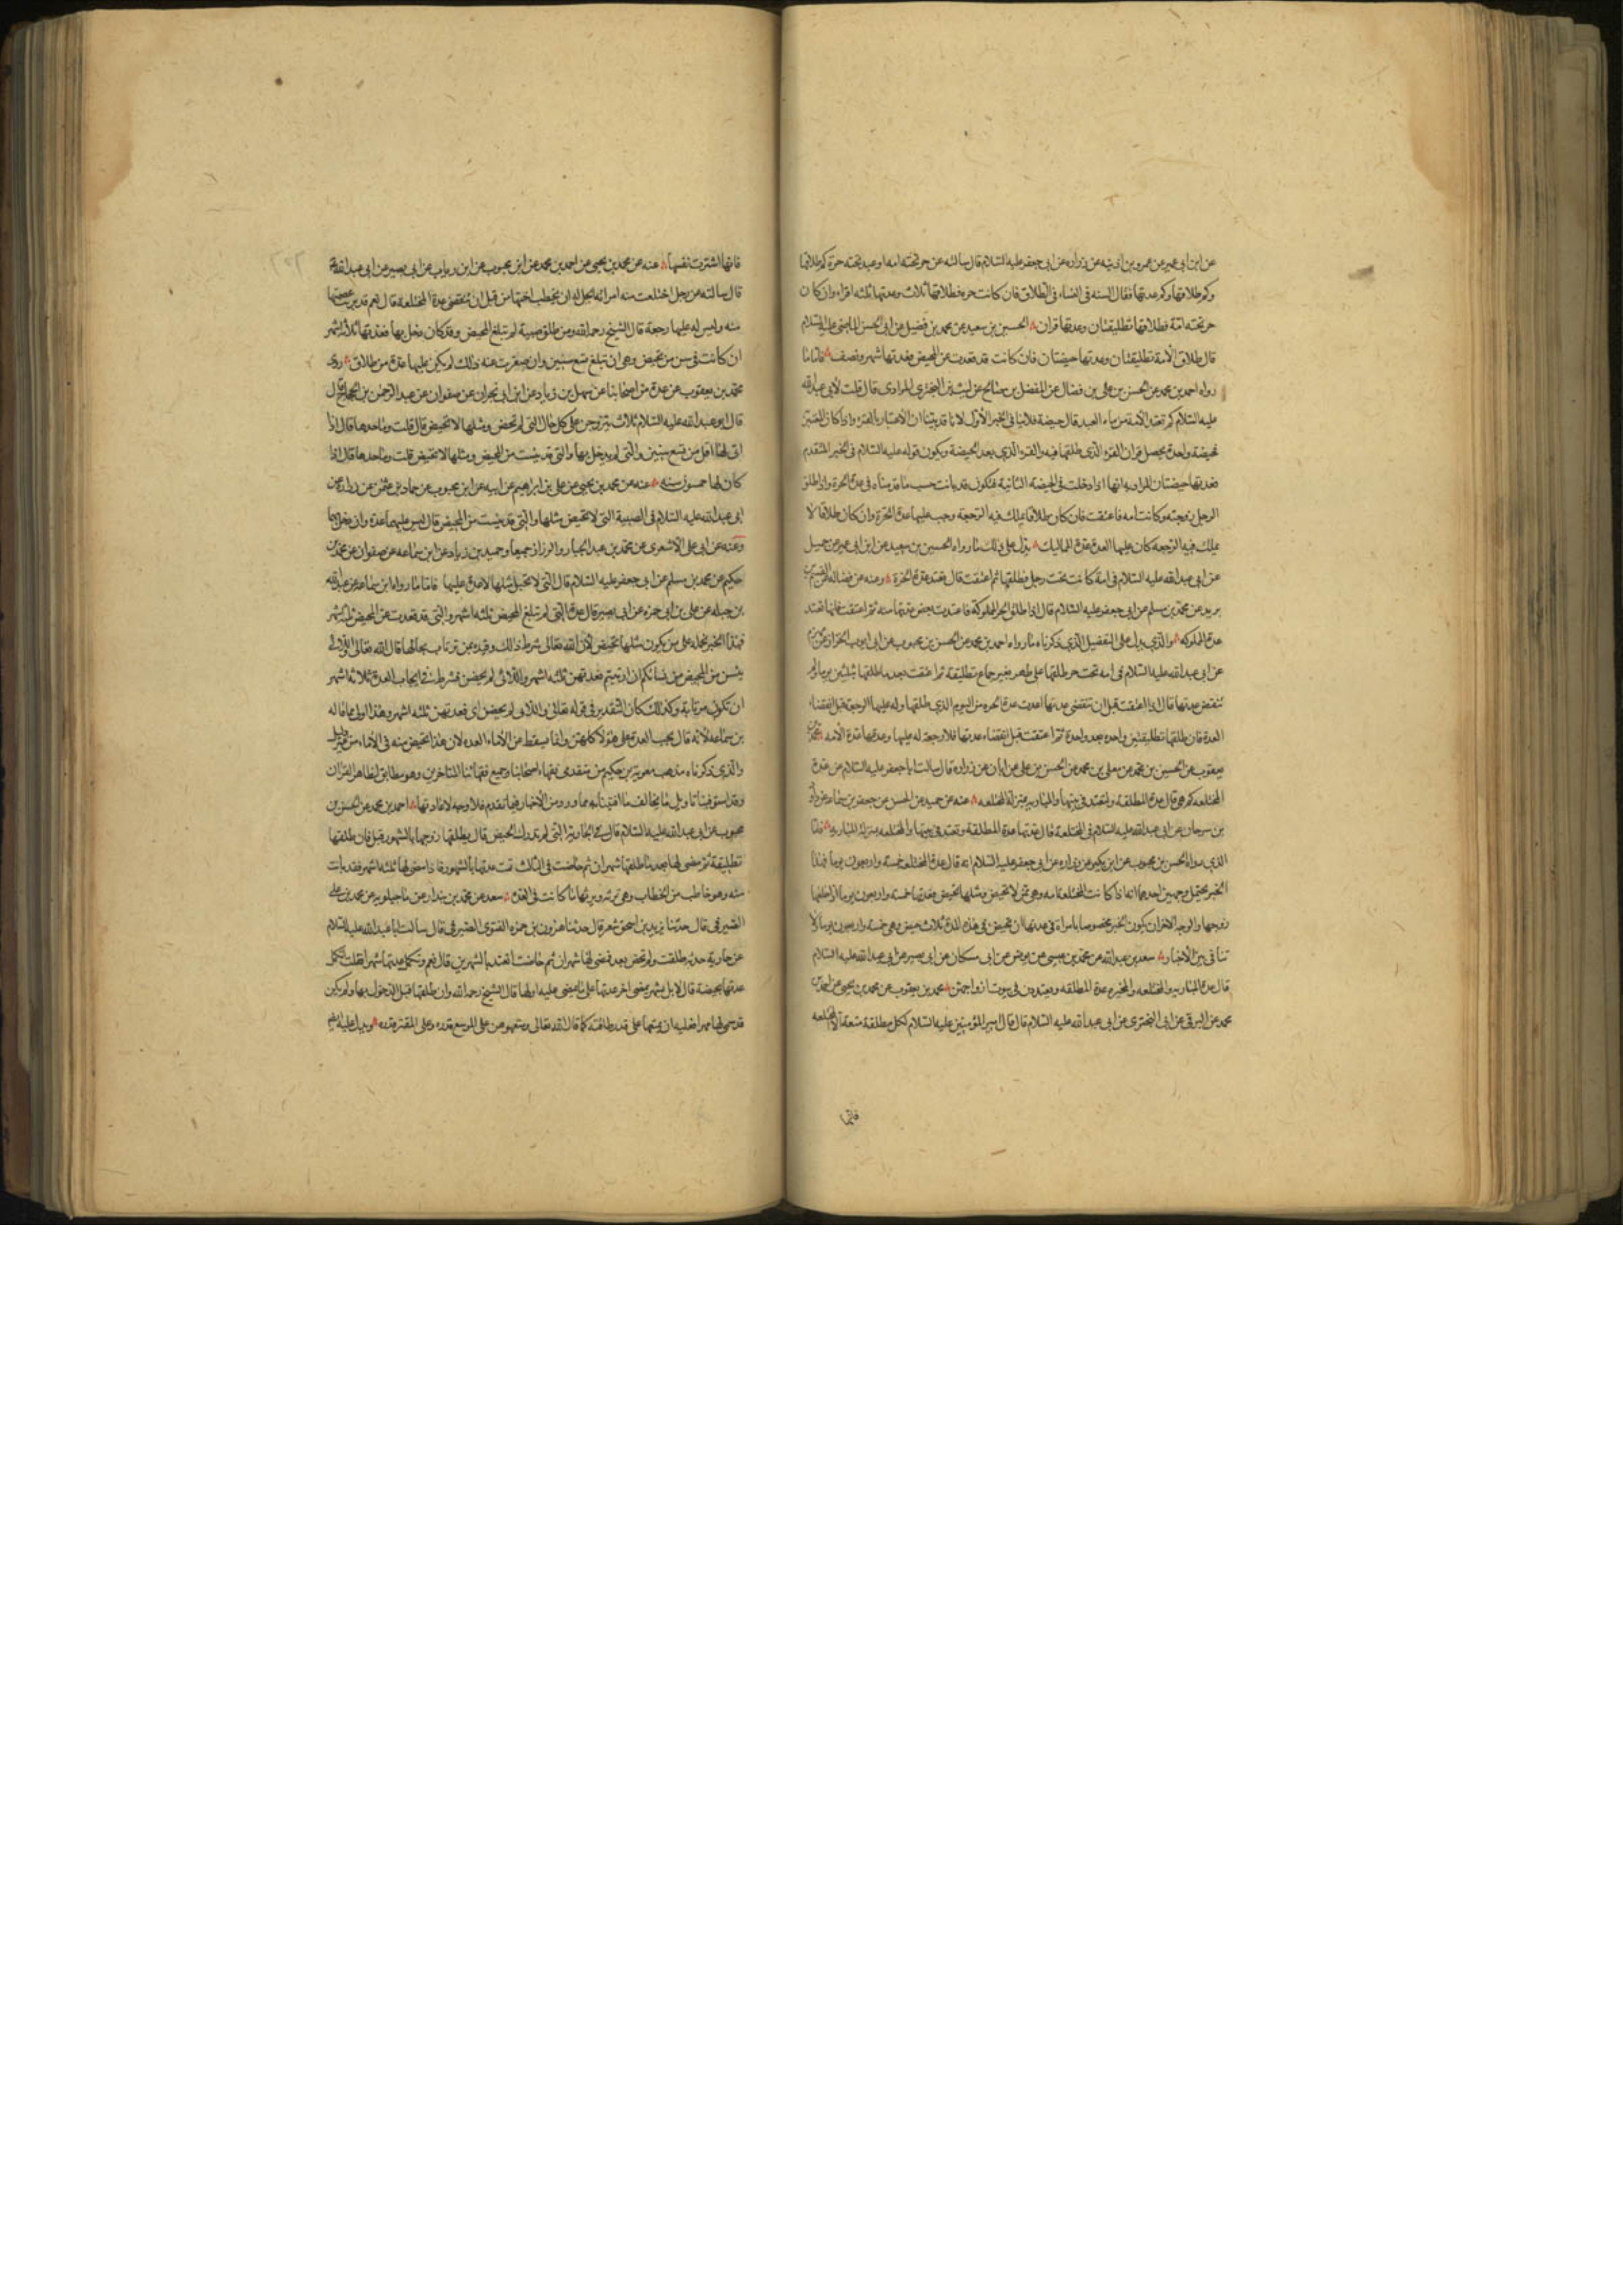 عن ابن ابی عمیر عن عمر بن اذینه عن زراره عن ابی جعفر علیه السلام قال سالته عن حر تحته امه او عبد تحته حره کم طلاقها
وکم طلاقها وکم عدتها فقال السنه فی النساء فی الطلاق فان کانت حره فطلاقها ثلاث وعدتها ثلثه اقراء وان کان
حر تحته امة فطلاقها تطلیقتان وعدتها قران الحسین بن سعید عن محمد بن فضیل عن ابی الحسن الماضی علیه السلام
قال طلاق الأمة تطلیقتان وعدتها حیضتان فان کانت قد قعدت عن المحیض فعدتها شهر ونصف فاما ما
رواه احمد بن محمد عن الحسن بن علی بن فضال عن المفضل بن صالح عن لیث بن البختری المرادی قال قلت لأبی عبد الله
علیه السلام کم تعتد الأمة من ماء العبد قال حیضة فلا ینافی الخبر الأول لانا قد بینا ان الاعتبار بالقرء واذا کان المعتبر
فحیضة واحدة یحصل قران القرء الذی طلقها فیه والقرء الذی بعد الحیضة ویکون قوله علیه السلام فی الخبر المتقدم
فعدتها حیضتان المراد به انها اذا دخلت فی الحیضة الثانیة فتکون قد بانت حسب ما قدمناه فی عدة الحرة واذا طلق
الرجل زوجته وکانت امه فاعتقت فان کان طلاقا یملك فیه الرجعة وجب علیها عدة الحرة وان کان طلاقا لا
یملك فیه الرجعه کان علیها العدة عدة الممالیك یدل علی ذلك ما رواه الحسین بن سعید عن ابن ابی عمیر عن جمیل
عن ابی عبد الله علیه السلام فی امة کانت تحت رجل فطلقها ثم اعتقت قال تعتد عدة الحرة وعنه عن فضاله عن القسم بن
برید عن محمد بن مسلم عن ابی جعفر علیه السلام قال اذا طلق الحر المملوکة فاعتدت بعض عدتها منه ثم اعتقت فانها تعتد
عدة المملوکه والذی یدل علی التفصیل الذی ذکرناه ما رواه احمد بن محمد عن الحسن بن محبوب عن ابی ایوب الخزاز عن مهزم
عن ابی عبد الله علیه السلام فی امه تحت حر طلقها علی طهر بغیر جماع تطلیقة ثم اعتقت بعد ما طلقها بثلثین یوما ولم
تنقض عدتها قال اذا اعتقت قبل ان تنقضی عدتها اعتدت عدة الحره من الیوم الذی طلقها وله علیها الرجعة قبل انقضاء
العدة فان طلقها تطلیقتین واحده بعد واحدة ثم اعتقت قبل انقضاء عدتها فلا رجعة له علیها وعدتها عدة الأمه محمد بن
یعقوب عن الحسین بن محمد عن معلی بن محمد عن الحسن بن علی عن ابان عن زراره قال سالت ابا جعفر علیه السلام عن عدة
المختلعه کم هی قال عدة المطلقة ولتعتد فی بیتها والمباریه بمنزلة المختلعه عنه عن حمید عن الحسن عن جعفر بن سماعة عن داود
بن سرحان عن ابی عبد الله علیه السلام فی المختلعة قال عدتها عدة المطلقة وتعتد فی بیتها والمختلعه بمنزلة المباریه فاما
الذی رواه الحسن بن محبوب عن ابن بکیر عن زراره عن ابی جعفر علیه السلام انه قال عدة المختلعه خمسه واربعون یوما فهذا
الخبر یحتمل وجهین احدهما انه اذا کانت المختلعة امه وهی ممن لا تحیض ومثلها تحیض فعدتها خمسه واربعون یوما اذا طلقها
زوجها والوجه الاخر ان یکون الخبر مخصوصا بامراة فی عدتها ان تحیض فی هذه المدة ثلاث حیض وهی خمسة واربعون یوما لا
تنافی بین الأخبار سعد بن عبد الله عن محمد بن عیسی عن یونس عن ابن مسکان عن ابی بصیر عن ابی عبد الله علیه السلام
قال عدة المباریه والمختلعه والمخیره عدة المطلقه ویعتددن فی بیوت ازواجهن محمد بن یعقوب عن محمد بن یحیی عن احمد بن
محمد عن البرقی عن ابی البختری عن ابی عبد الله علیه السلام قال قال امیر المؤمنین علیه السلام لکل مطلقة متعة الا المختلعه
فانها
فانها اشترت نفسها عنه عن محمد بن یحیی عن احمد بن محمد عن ابن محبوب عن ابن رئاب عن ابی بصیر عن ابی عبد الله
قال سالته عن رجل اختلعت منه امراته ایحل له ان یخطب اختها من قبل ان تنقضی عدة المختلعة قال نعم قد برئت عصمتها
منه ولیس له علیها رجعة قال الشیخ رحمه الله ومن طلق صبیة لم تبلغ المحیض وقد کان دخل بها فعدتها ثلاثة اشهر
ان کانت فی سن من تحیض وهی ان تبلغ تسع سنین وان صغرت عنه ذلك لم یکن علیها عدة من طلاق روی
محمد بن یعقوب عن عدة من اصحابنا عن سهل بن زیاد عن ابن ابی نجران عن صفوان عن عبد الرحمن بن الحجاج قال
قال ابو عبد الله علیه السلام ثلاث یتزوجن علی کل حال التی لم تحض ومثلها لا تحیض قال قلت وما حدها قال اذا
اتی لها اقل من تسع سنین والتی لم یدخل بها والتی قد یئست من المحیض ومثلها لا تحیض قلت وما حدها قال اذا
کان لها خمسون سنه عنه عن محمد بن یحیی عن علی بن ابراهیم عن ابیه عن ابن محبوب عن حماد بن عثمن عن زراره عن
ابی عبد الله علیه السلام فی الصبیة التی لا تحیض مثلها والتی قد یئست من المحیض قال لیس علیهما عدة وان دخل بهما
وعنه عن ابی علی الاشعری عن محمد بن عبد الجبار والرزاز جمیعا وحمید بن زیاد عن ابن سماعه عن صفوان عن محمد بن
حکیم عن محمد بن مسلم عن ابی جعفر علیه السلام قال التی لا تحبل مثلها لا عدة علیها فاما ما رواه ابن سماعه عن عبد الله
بن جبله عن علی بن ابی حمزه عن ابی بصیر قال عدة التی لم تبلغ المحیض ثلثه اشهر والتی قد قعدت عن المحیض ثلثه اشهر
فهذا الخبر نحمله علی من یکون مثلها تحیض لأن الله تعالی شرط ذلك وقیده بمن ترتاب بحالها قال الله تعالی واللائی
یئسن من المحیض من نسائکم ان ارتبتم فعدتهن ثلثه اشهر واللائی لم یحضن فشرط فی ایجاب العدة ثلاثة اشهر
ان تکون مرتابة وکذلك کان التقدیر فی قوله تعالی واللائی لم یحضن ای فعدتهن ثلثه اشهر وهذا اولی مما قاله
بن سماعه لأنه قال یجب العدة علی هؤلاء کلهن وانما یسقط عن الأماء العده لان هذا تخصیص منه فی الأماء من غیر دلیل
والذی ذکرناه مذهب معویة بن حکیم من متقدمی فقهاء اصحابنا وجمیع فقهائنا المتاخرین وهو مطابق لظاهر القران
وقد استوفینا تاویل ما یخالف ما افتینا به مما ورد من الأخبار فیما تقدم فلا وجه لاعادتها احمد بن محمد عن الحسن بن
محبوب عن ابی عبد الله علیه السلام قال فی الجاریة التی لم تدرك الحیض قال یطلقها زوجها بالشهور قیل فان طلقها
تطلیقة ثم مضی لها بعد ما طلقها شهر ان ثم حاضت فی الثالث تمت عدتها بالشهور فاذا مضی لها ثلثه اشهر فقد بانت
منه وهو خاطب من الخطاب وهی ترثه ویرثها ما کانت فی العدة سعد عن محمد بن بندار عن ماجیلویه عن محمد بن علی
الصیرفی قال حدثنا یزید بن اسحق شعر قال حدثنا هرون بن حمزه الغنوی الصیرفی قال سالت ابا عبد الله علیه السلام
عن جاریة حدثه طلقت ولم تحض بعد فمضی لها شهران ثم حاضت اتعتد بالشهرین قال نعم وتکمل عدتها شهرا فقلت اتکمل
عدتها بحیضة قال لا بل بشهر مضی اخر عدتها علی ما مضی علیه اولها قال الشیخ رحمه الله وان طلقها قبل الدخول بها ولم یکن
قد سمی لها مهرا فعلیه ان یمتعها علی قدر طاقته کما قال الله تعالی ومتعوهن علی الموسع قدره وعلی المقتر قدره ویدل علیه